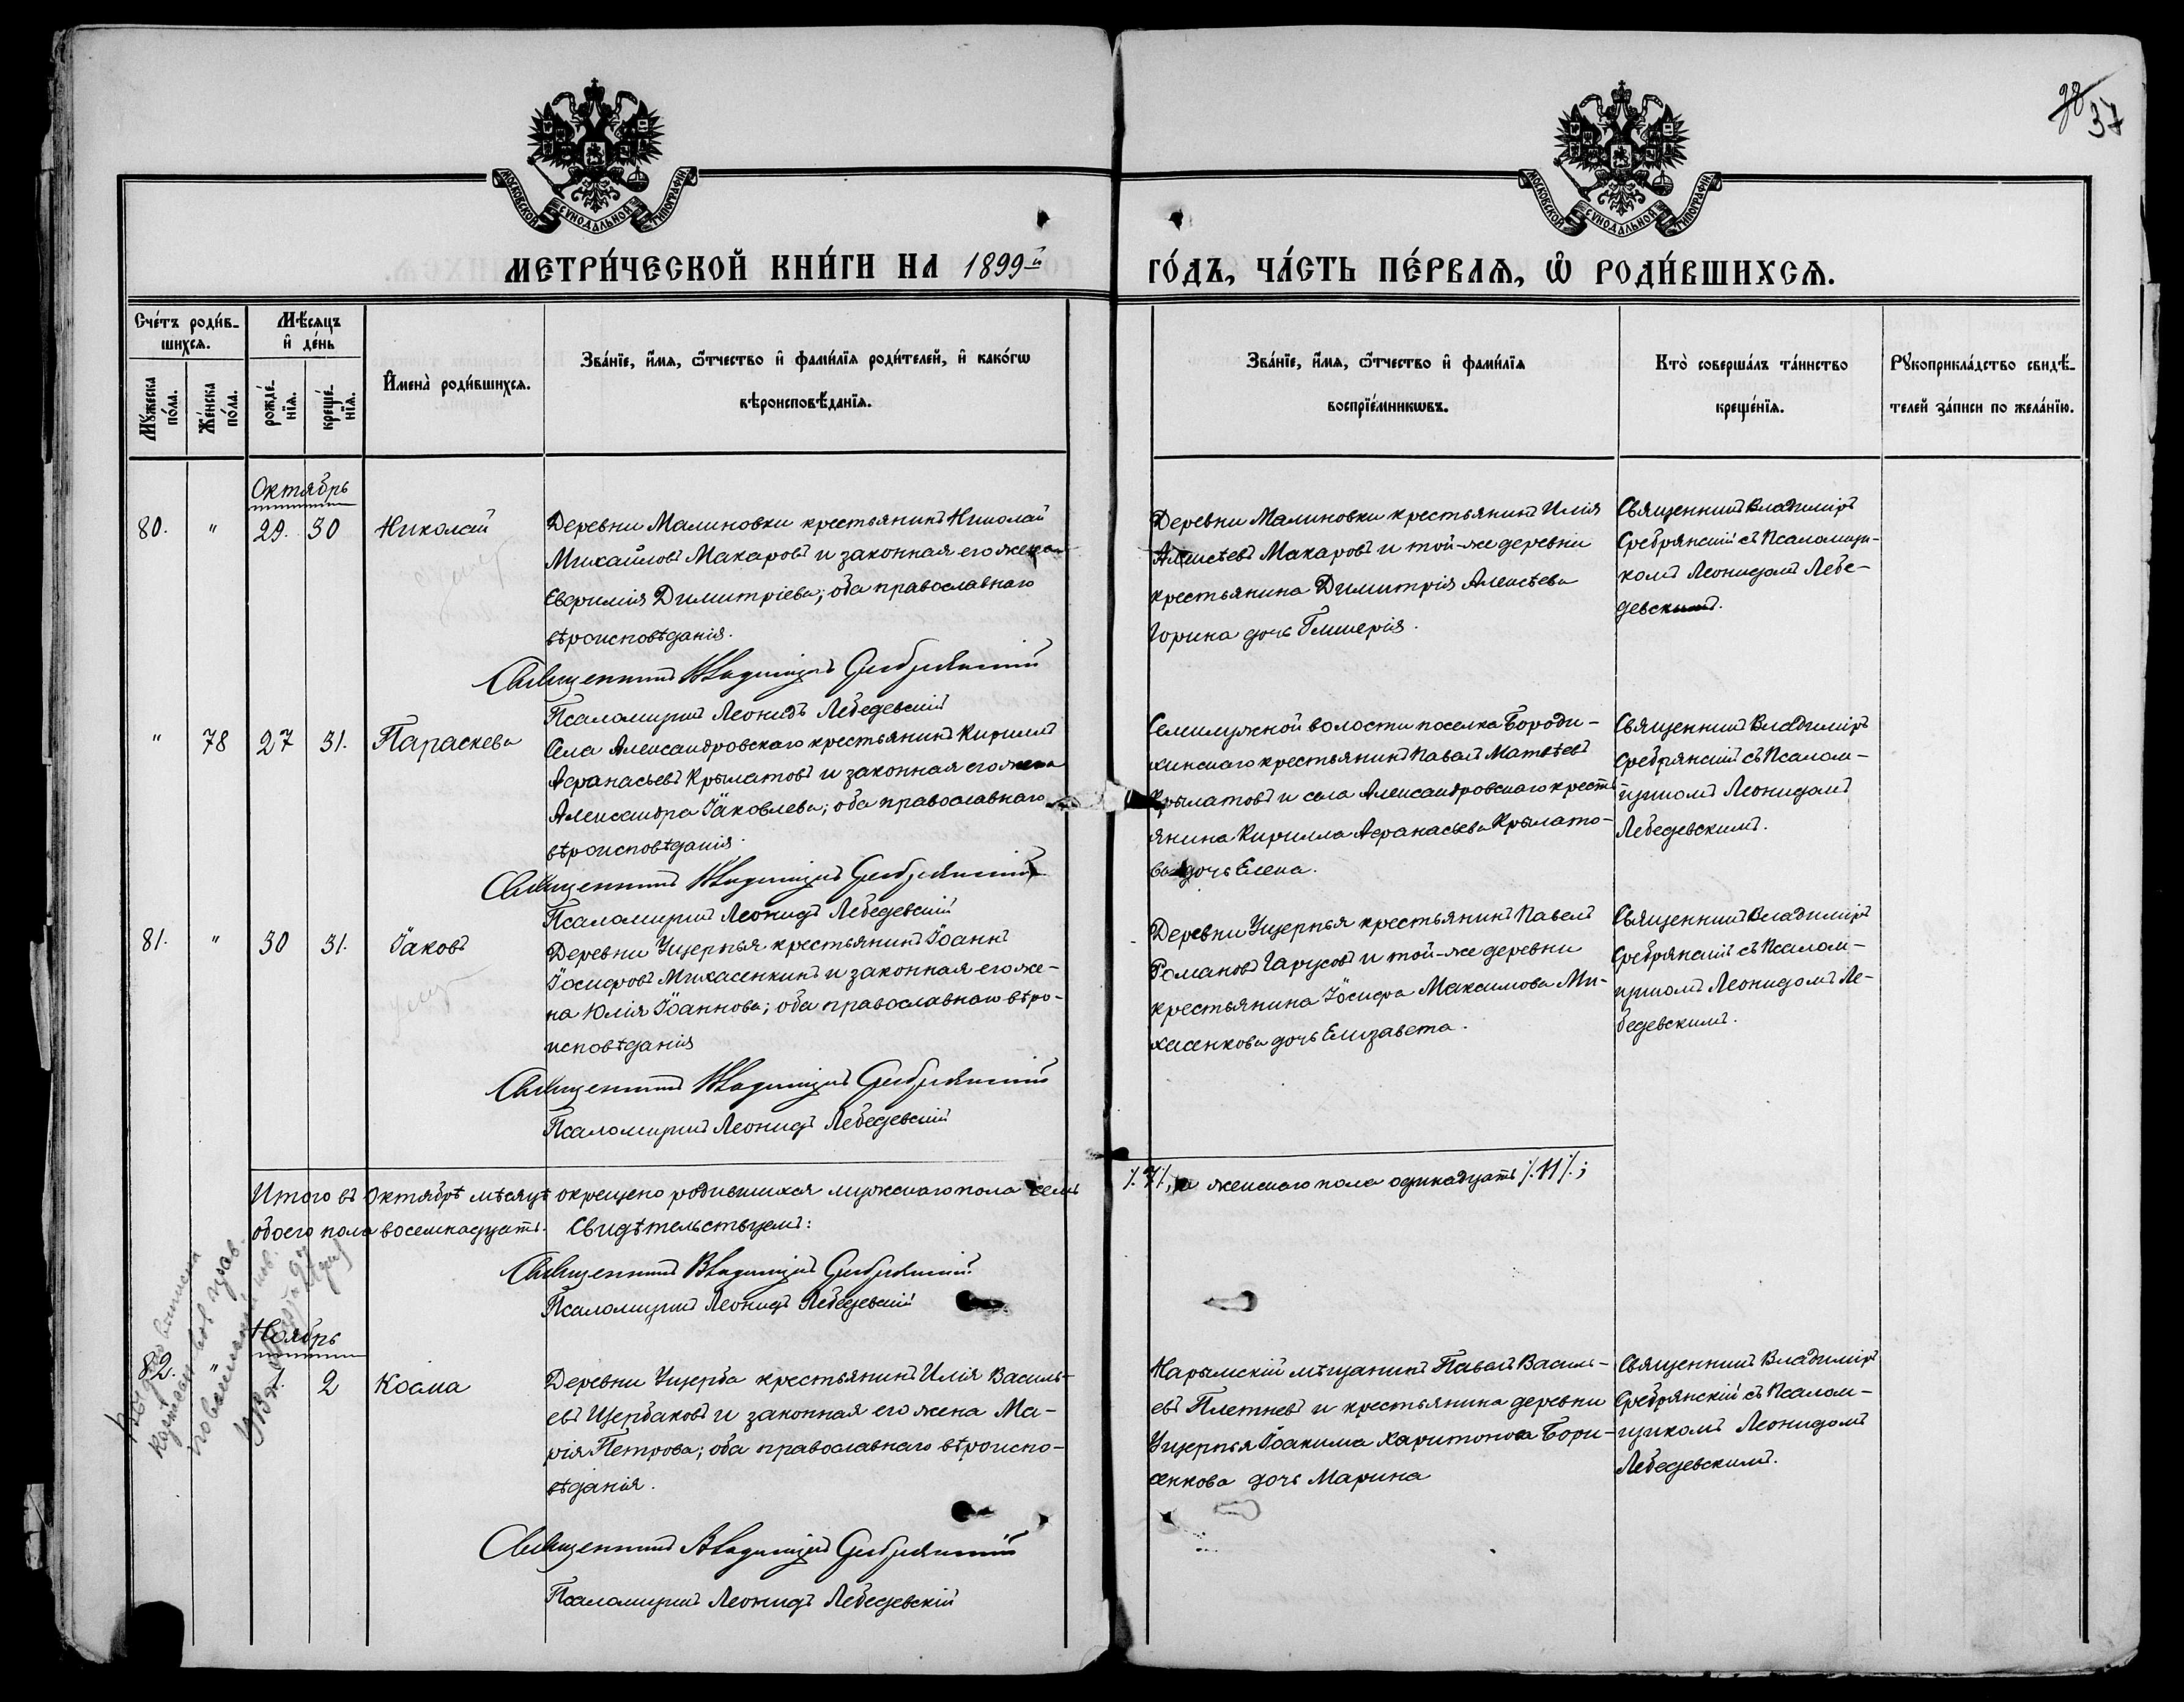 38 37
МОСКОВСКОЙ СУНОДАЛЬНОЙ ТИПОГРАФІИ
МОСКОВСКОЙ СУНОДАЛЬНОЙ ТИПОГРАФІИ
МЕТРИ́ЧЕСКОЙ КНИ́ГИ НА 1899й
ГО́ДЪ, ЧА́СТЬ ПЕ́РВАѦ, Ѡ РОДИ́ВШИХСѦ.
Сче́тъ роди́в-
шихсѧ.
Мꙋ́жеска
по́ла.
Же́нска
по́ла.
Мѣ́сѧцъ
и҆ де́нь
рожде́-
нїѧ.
креще́-
нїѧ.
И҆мена̀ роди́вшихсѧ.
Зва́нїе, и҆́мѧ, ѻ҆́тчество и҆ фами́лїѧ роди́телей, и҆ како́гѡ
вѣроисповѣ́данїѧ.
Зва́нїе, и҆́мѧ, ѻ҆́тчество и҆ фами́лїѧ
воспрїе́мникѡвъ.
Кто̀ соверша́лъ та́инство
креще́нїѧ.
Рꙋкоприкла́дство свидѣ́-
телей за́писи по жела́нїю.
Октябрь
80. " 29. 30 Николай
Деревни Малиновки крестьянинъ Николай
Михайловъ Макаровъ и законная его жена
Евфимія Димитріева; оба православнаго
вѣроисповѣданія.
Священникъ Владиміръ Сребрянскій
Псаломщикъ Леонидъ Лебедевскій
Деревни Малиновки крестьянинъ Илія
Алексѣевъ Макаровъ и той-же деревни
крестьянина Димитрія Алексѣева
Горина дочь Гликерія.
Священникъ Владиміръ
Сребрянскій съ Псаломщи-
комъ Леонидомъ Лебе-
девскимъ.
" 78 27 31. Параскева
Села Александровскаго крестьянинъ Кириллъ
Афанасьевъ Крылатовъ и законная его жена
Александра Іаковлева; оба православнаго
вѣроисповѣданія.
Священникъ Владиміръ Сребрянскій
Псаломщикъ Леонидъ Лебедевскій
Семилужной волости поселка Бороди-
хинскаго крестьянинъ Павелъ Матвѣевъ
Крылатовъ и села Александровскаго кресть
янина Кирилла Афанасьева Крылато-
ва дочь Елена.
Священникъ Владиміръ
Сребрянскій съ Псалом-
щикомъ Леонидомъ
Лебедевскимъ.
81. " 30 31. Іаковъ
Деревни Ущерпья крестьянинъ Іоаннъ
Іосифовъ Михасенкинъ и законная его же-
на Юлія Іоаннова; оба православнаго вѣро-
исповѣданія
Священникъ Владиміръ Сребрянскій
Псаломщикъ Леонидъ Лебедевскій
Деревни Ущерпья крестьянинъ Павелъ
Романовъ Гарусовъ и той-же деревни
крестьянина Іосифа Максимова Ми-
хасенкова дочь Елизавета.
Священникъ Владиміръ
Сребрянскій съ Псалом-
щикомъ Леонидомъ Ле-
бедевскимъ.
Итого въ Октябрѣ мѣсяцѣ окрещено родившихся мужескаго пола семь /.7/., а женскаго пола одинадцать /.11/.;
обоего пола восемнадцать. Свидѣтельствуемъ:
Священникъ Владиміръ Сребрянскій
Псаломщикъ Леонидъ Лебедевскій
Ноябрь
82. " 1. 2 Косма
Деревни Ущерба крестьянинъ Илія Василь-
евъ Щербаковъ и законная его жена Ма-
рія Петрова; оба православнаго вѣроиспо-
вѣданія.
Священникъ Владиміръ Сребрянскій
Псаломщикъ Леонидъ Лебедевскій
Нарымскій мѣщанинъ Павелъ Василь-
евъ Плетневъ и крестьянина деревни
Ущерпья Іоакима Харитонова Бори-
сенкова дочь Марина
Священникъ Владиміръ
Сребрянскій съ Псалом-
щикомъ Леонидомъ
Лебедевскимъ.